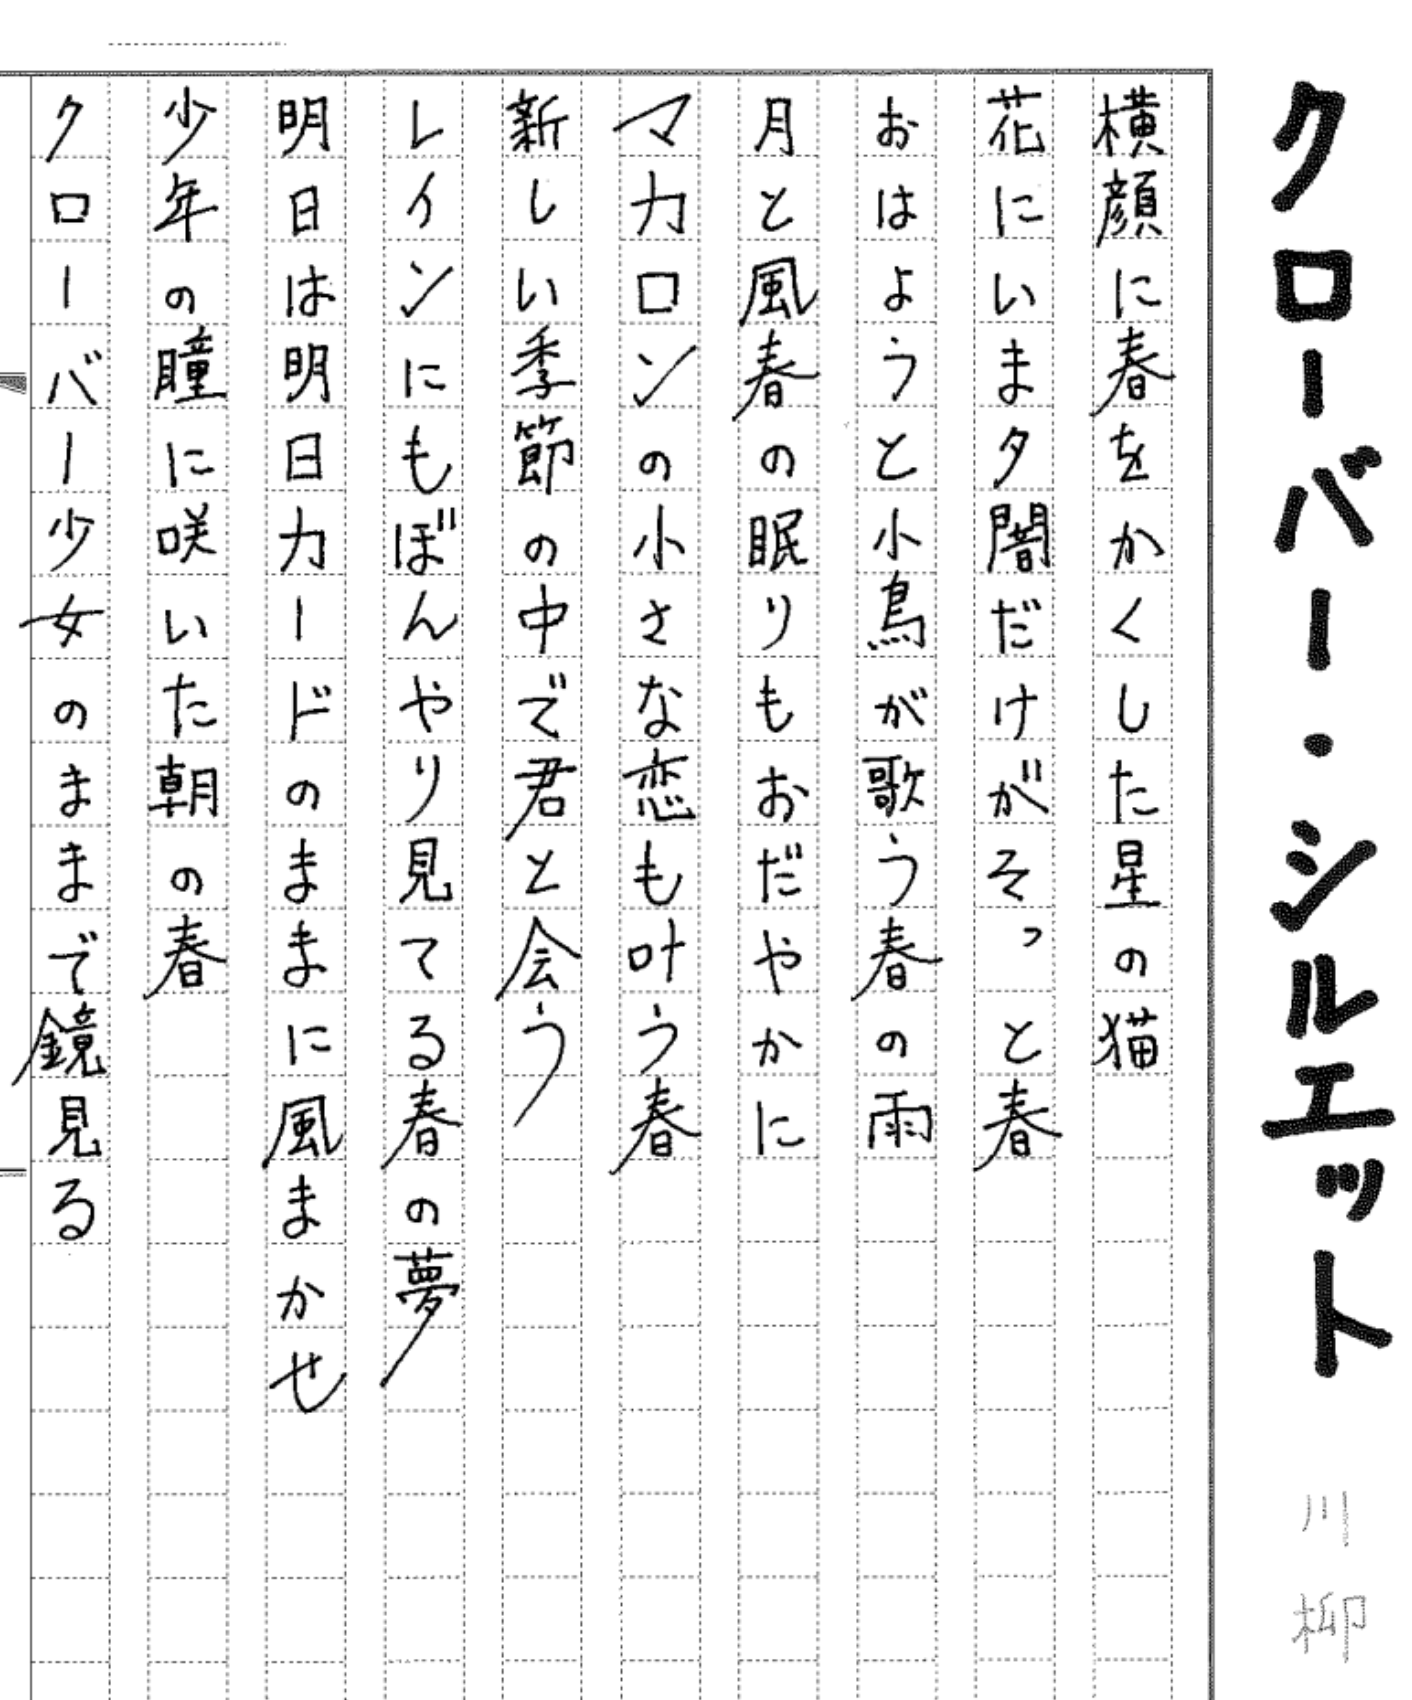 クローバー・シルエット
川柳
横顔に春をかくした星の猫
花にいま夕闇だけがそっと春
おはようと小鳥が歌う春の雨
月と風春の眠りもおだやかに
マカロンの小さな恋も叶う春
新しい季節の中で君と会う
レインにもぼんやり見てる春の夢
明日は明日カードのままに風まかせ
少年の瞳に咲いた朝の春
クローバー少女のままで鏡見る